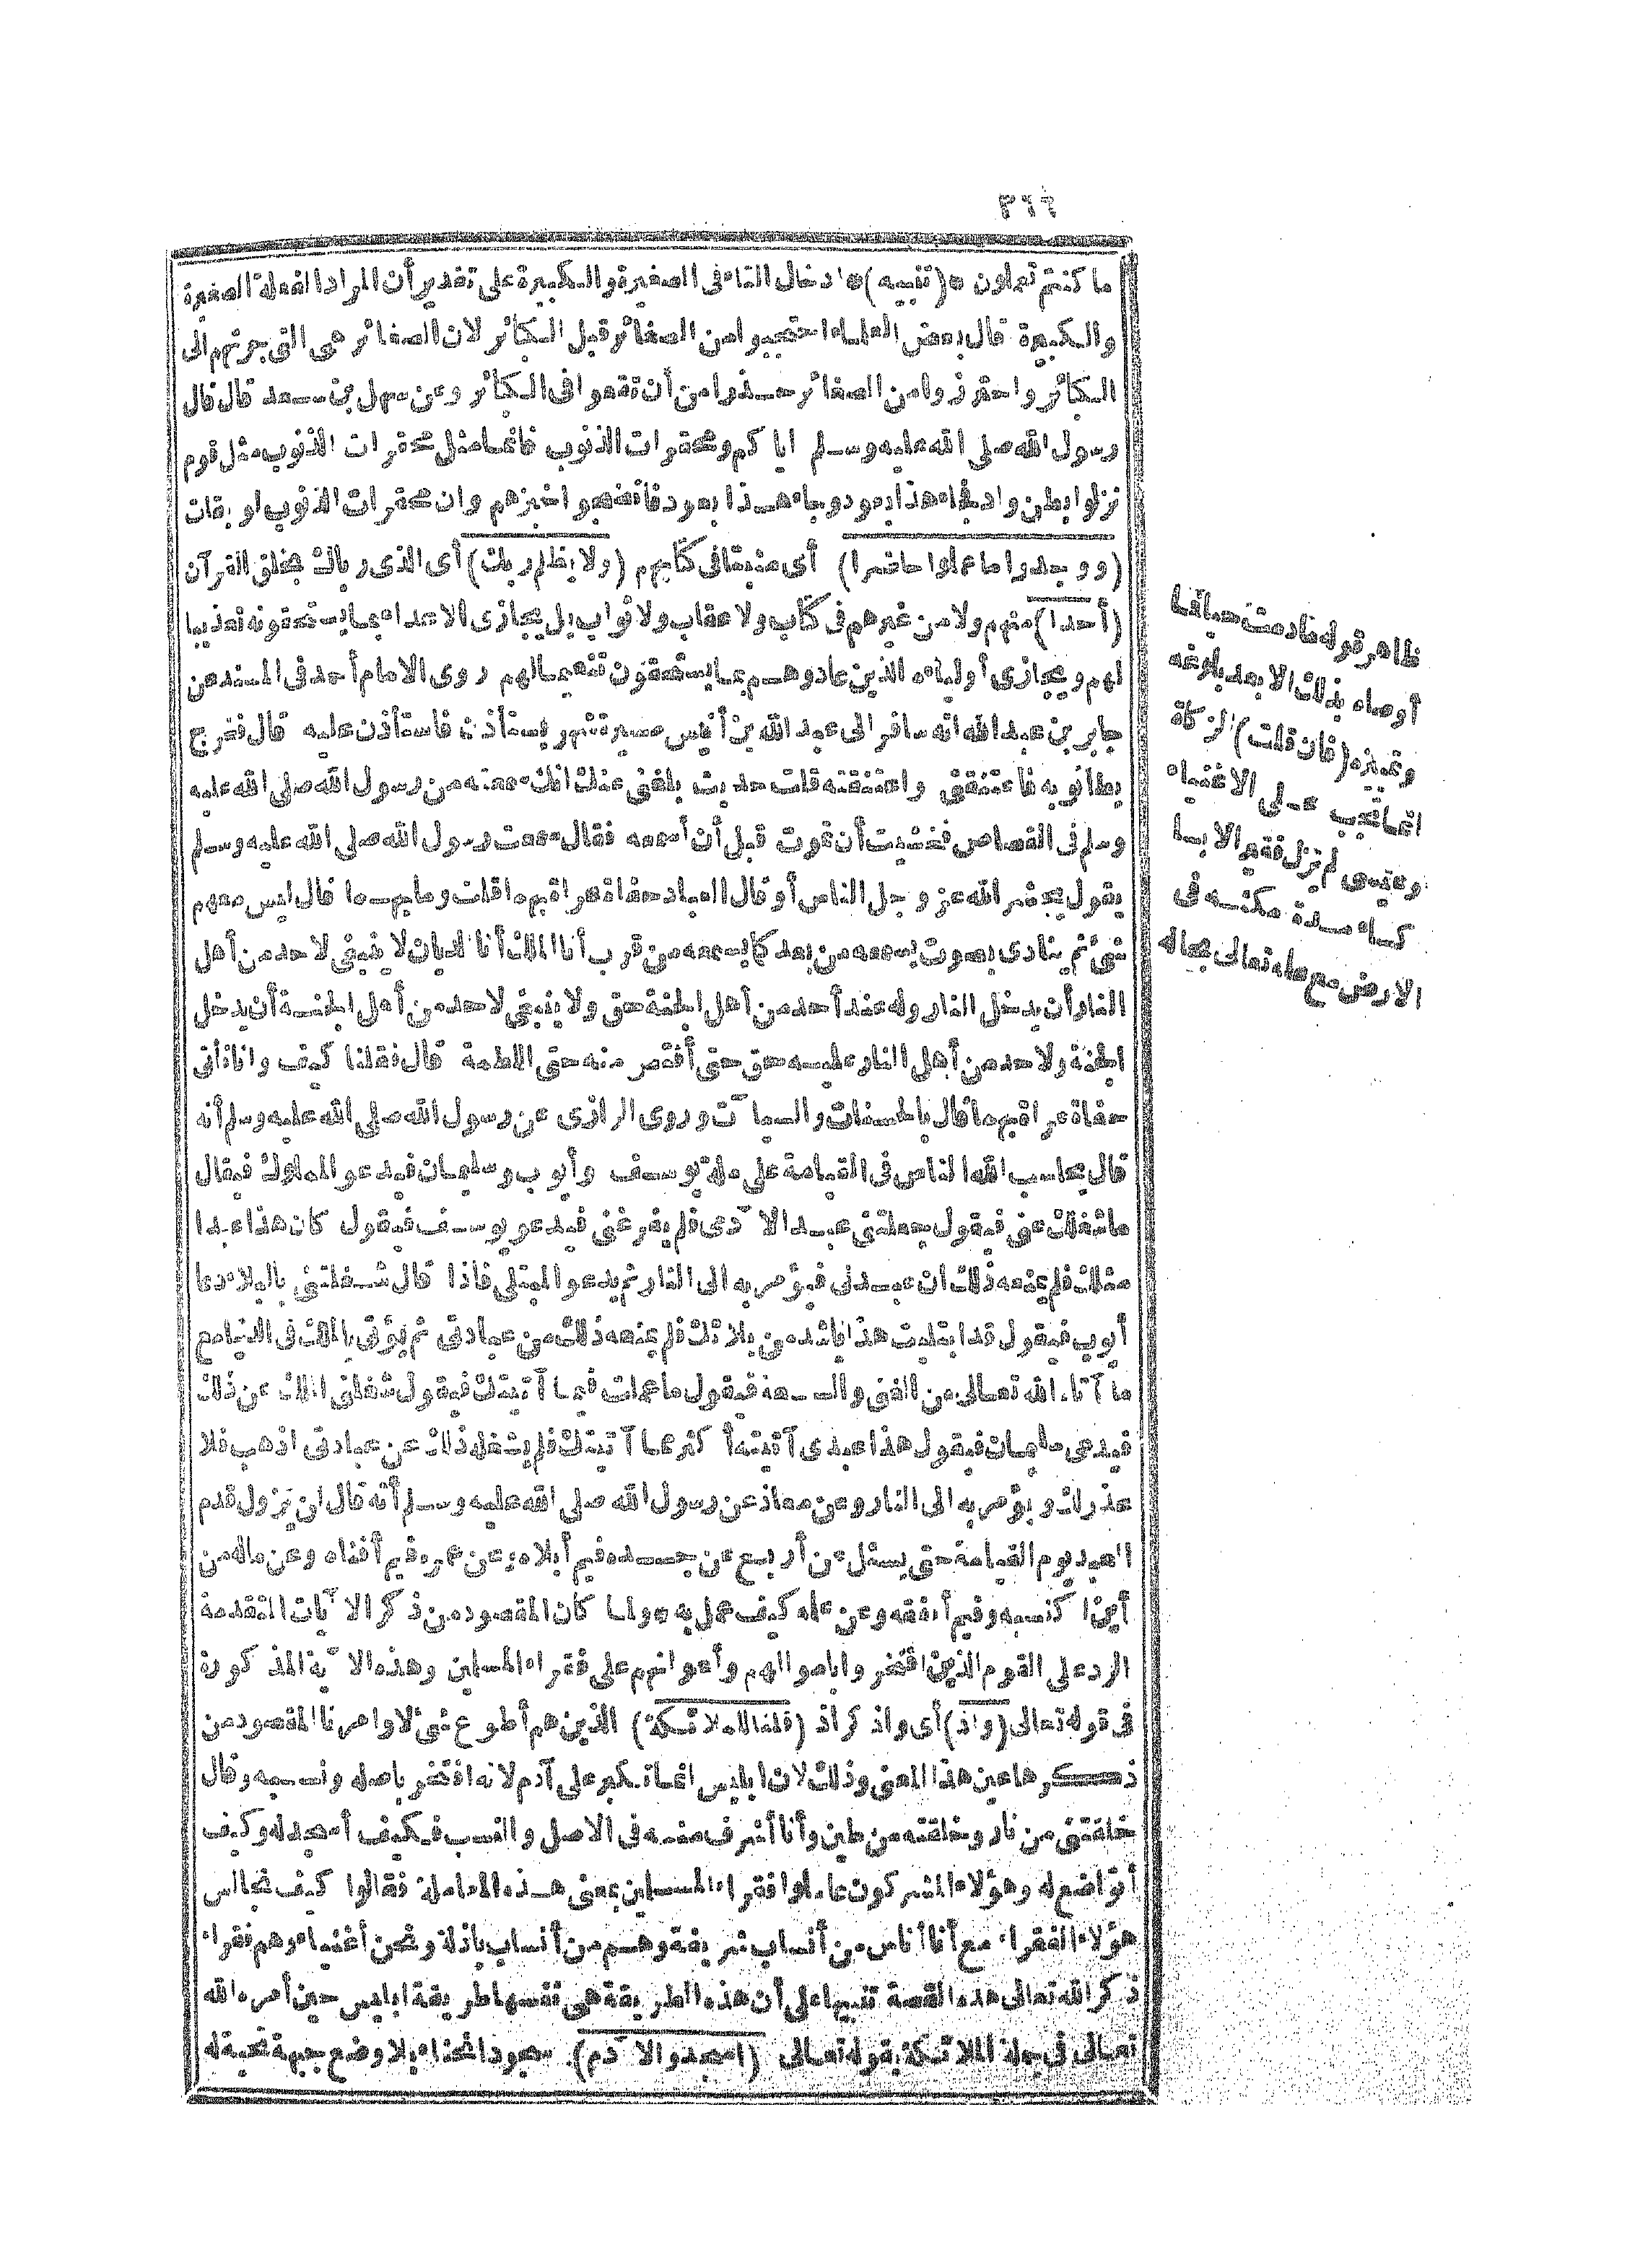 ٣٦٦
ما كنتم تعملون *(تنبيه)* ادخال التاء فى الصغيرة والكبيرة على تقدير أن المراد الفعلة الصغيرة
والكبيرة قال بعض العلماء احتجبوا من الصغائر قبل الكبائر لان الصغائر هى التى جرتهم الى
الكبائر واحترزوا من الصغائر حذرا من أن تقعوا فى الكبائر وعن سهل بن سعد قال قال
رسول الله صلى الله عليه وسلم ايا كم ومحقرات الذنوب فانما مثل محقرات الذنوب مثل قوم
نزلوا ببطن واد فجاء هذا بعود وجاء هذا بعود فانضجوا خبزهم وان محقرات الذنوب لو بقات
(ووجدوا ما عملوا حاضرا) أى مثبتا فى كتابهم (ولا يظلم ربك) أى الذى رباك بخلق القرآن
(أحدا) منهم ولا من غيرهم فى كتاب ولا عقاب ولا ثواب بل يجازى الاعداء بما يستحقونه تعذيبا
لهم ويجازى أولياءه الذين عادوهم بما يستحقون تنعيما لهم روى الامام أحمد فى المسند عن
جابر بن عبد الله انه سافر الى عبد الله بن أنيس مسيرة شهر يستأذن فاستأذن عليه قال فخرج
يطأ ثوبه فاعتنقنى واعتنقته قلت حديث بلغنى عنك انك سمعته من رسول الله صلى الله عليه
وسلم فى القصاص فخشيت أن تموت قبل أن أسمعه فقال سمعت رسول الله صلى الله عليه وسلم
يقول يحشر الله عز وجل الناس أو قال العباد حفاة عراة بهما قلت وما بهما قال ليس معهم
شئ ثم ينادى بصوت يسمعه من بعد كما يسمعه من قرب أنا الملك أنا الديان لا ينبغى لاحد من أهل
النار أن يدخل النار وله عند أحد من أهل الجنة حق ولا ينبغى لاحد من أهل الجنة أن يدخل
الجنة ولاحد من أهل النار عليه حق حتى أقتص منه حتى اللطمة قال فقلنا كيف وانا نأتى
حفاة عراة بهما قال بالحسنات والسيآت وروى الرازى عن رسول الله صلى الله عليه وسلم أنه
قال يحاسب الله الناس فى القيامة على ملة يوسف وأيوب وسليمان فيدعو المملوك فيقال
ما شغلك عنى فيقول جعلتنى عبد الا دمى فلم يفرغنى فيدعو يوسف فيقول كان هذا عبدا
مثلك فلم يمنعه ذلك ان عبدنى فيؤمر به الى النار ثم يدعو المبتلى فاذا قال شغلتنى بالبلاء دعا
أيوب فيقول قد ابتليت هذا بأشد من بلائك فلم يمنعه ذلك من عبادتى ثم يؤتى بالملك فى الدنيا مع
ما آتاه الله تعالى من الغنى والسعة فيقول ما عملت فيما آتيتك فيقول شغلنى الملك عن ذلك
فيدعى سليمان فيقول هذا عبدى آتيته أكثر مما آتيتك فلم يشغله ذلك عن عبادتى اذهب فلا
عذر لك ويؤمر به الى النار وعن معاذ عن رسول الله صلى الله عليه وسلم أنه قال لن تزول قدم
العبد يوم القيامة حتى يسئل عن أربع عن جسده فيم أبلاه وعن عمره فيم أفناه وعن ماله من
أين اكتسبه وفيم أنفقه وعن علمه كيف عمل به *ولما كان المقصود من ذكر الا يات المتقدمة
الرد على القوم الذين افتخروا باموالهم وأعوانهم على فقراء المسلمين وهذه الا ية المذكورة
فى قوله تعالى (واذ) أى واذ كر اذ (قلنا للملائكة) الذين هم أطوع شئ لاوامرنا المقصود من
ذكرها عين هذا المعنى وذلك لان ابليس انما تكبر على آدم لانه افتخر باصله ونسبه وقال
خلقتنى من نار وخلقته من طين وأنا أشرف منه فى الاصل والنسب فكيف أسجد له وكيف
أتواضع له وهؤلاء المشركون عاملوا فقراء المسلمين بمعنى هذه المعاملة فقالوا كيف نجالس
هؤلاء الفقراء مع أنا أناس من أنساب شريفة وهم من أنساب باذلة ونحن أغنياء وهم فقراء
ذكر الله تعالى هذه القصة تنبيها على أن هذه الطريقة هى نفسها طريقة ابليس حين أمره الله
تعالى فى جملة الملائكة بقوله تعالى (اسجدوا لا دم) سجود انحناء بلا وضع جبهة تحية له
ظاهر قوله مادمت حيا فما
أوصاه بذلك الا بعد بلوغه
وتمييزه (فان قلت) الزكاة
انما تجب على الاغنياء
وعيسى لم يزل فقيرا لابسا
كساء مدة مكثه فى
الارض مع علمه تعالى بحاله